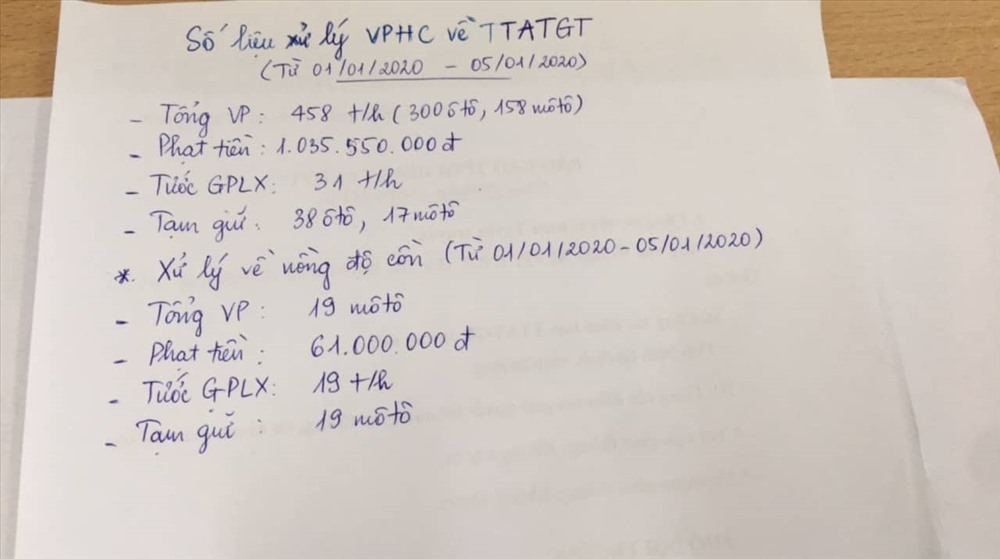 Số liệu xử lý VPHC về TTATGT
(Từ 01/01/2020 - 05/01/2020)
- Tổng VP: 458 t/h (300 ôtô, 158 môtô)
- Phạt tiền: 1.035.550.000đ
- Tước GPLX: 31 t/h
- Tạm giữ: 38 ôtô, 17 môtô
*. Xử lý về nồng độ cồn (Từ 01/01/2020 - 05/01/2020)
- Tổng VP: 19 môtô
- Phạt tiền: 61.000.000 đ
- Tước GPLX: 19 t/h
- Tạm giữ: 19 môtô